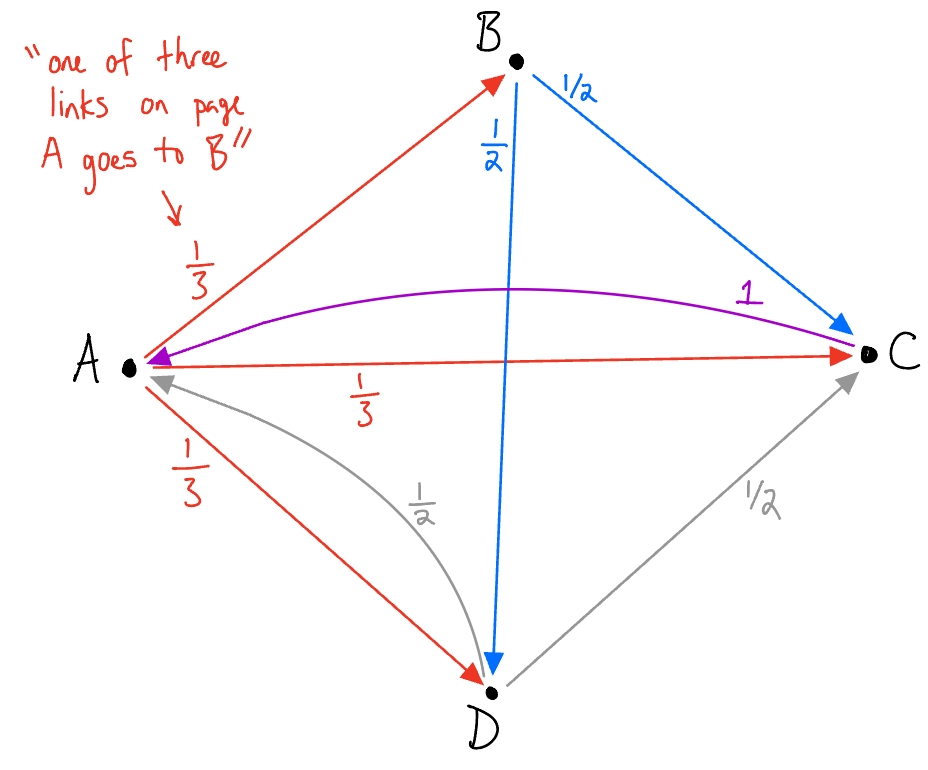 B
"one of three
links on page
A goes to B"
1/2
1/2
1/3
1
A
C
1/3
1/3
1/2
1/2
D